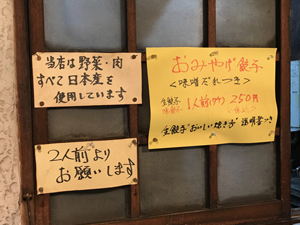 当店は野菜・肉
すべて日本産を
使用しています
2人前より
お願いします
おみやげ餃子
<味噌だれつき>
生餃子
1人前(7ケ) 250円
生餃子"おいしい焼き方"説明書つき